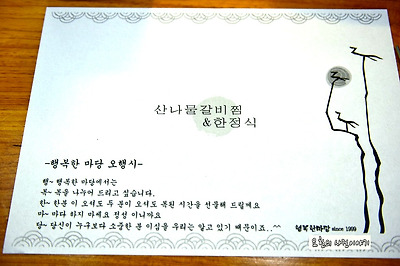 산나물갈비찜
&한정식
-행복한 마당 오행시-
행~ 행복한 마당에서는
복~ 복을 나누어 드리고 싶습니다.
한~ 한분이 오셔도 두 분이 오셔도 복된 시간을 선물해 드릴께요
마~ 마다 하지 마세요 정성 이니까요
당~ 당신이 누구보다 소중한 분 이심을 우리는 알고 있기 때문이죠..^^
행복한마당 since 1999